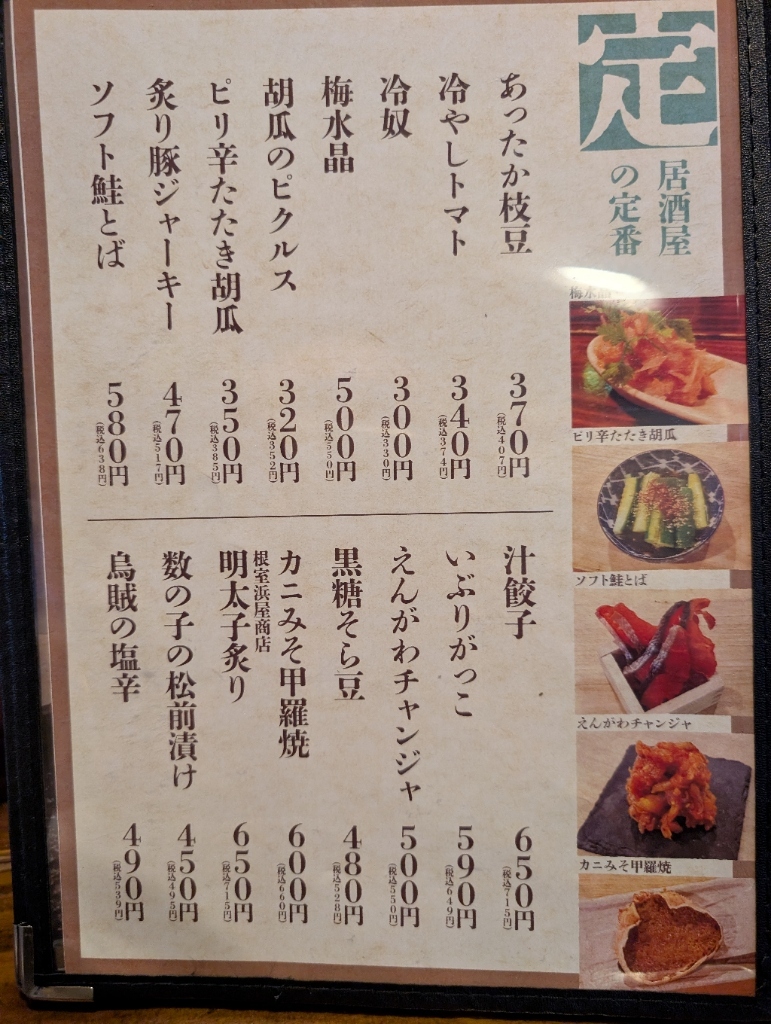 定
居酒屋
の定番
あったか枝豆
370円
(税込407円)
冷やしトマト
340円
(税込374円)
冷奴
300円
(税込330円)
梅水晶
500円
(税込550円)
胡瓜のピクルス
320円
(税込352円)
ピリ辛たたき胡瓜
350円
(税込385円)
炙り豚ジャーキー
470円
(税込517円)
ソフト鮭とば
580円
(税込638円)
汁餃子
650円
(税込715円)
いぶりがっこ
590円
(税込649円)
えんがわチャンジャ
500円
(税込550円)
黒糖そら豆
480円
(税込528円)
カニみそ甲羅焼
600円
(税込660円)
根室浜屋商店
明太子炙り
650円
(税込715円)
数の子の松前漬け
450円
(税込495円)
烏賊の塩辛
490円
(税込539円)
梅水晶
ピリ辛たたき胡瓜
ソフト鮭とば
えんがわチャンジャ
カニみそ甲羅焼